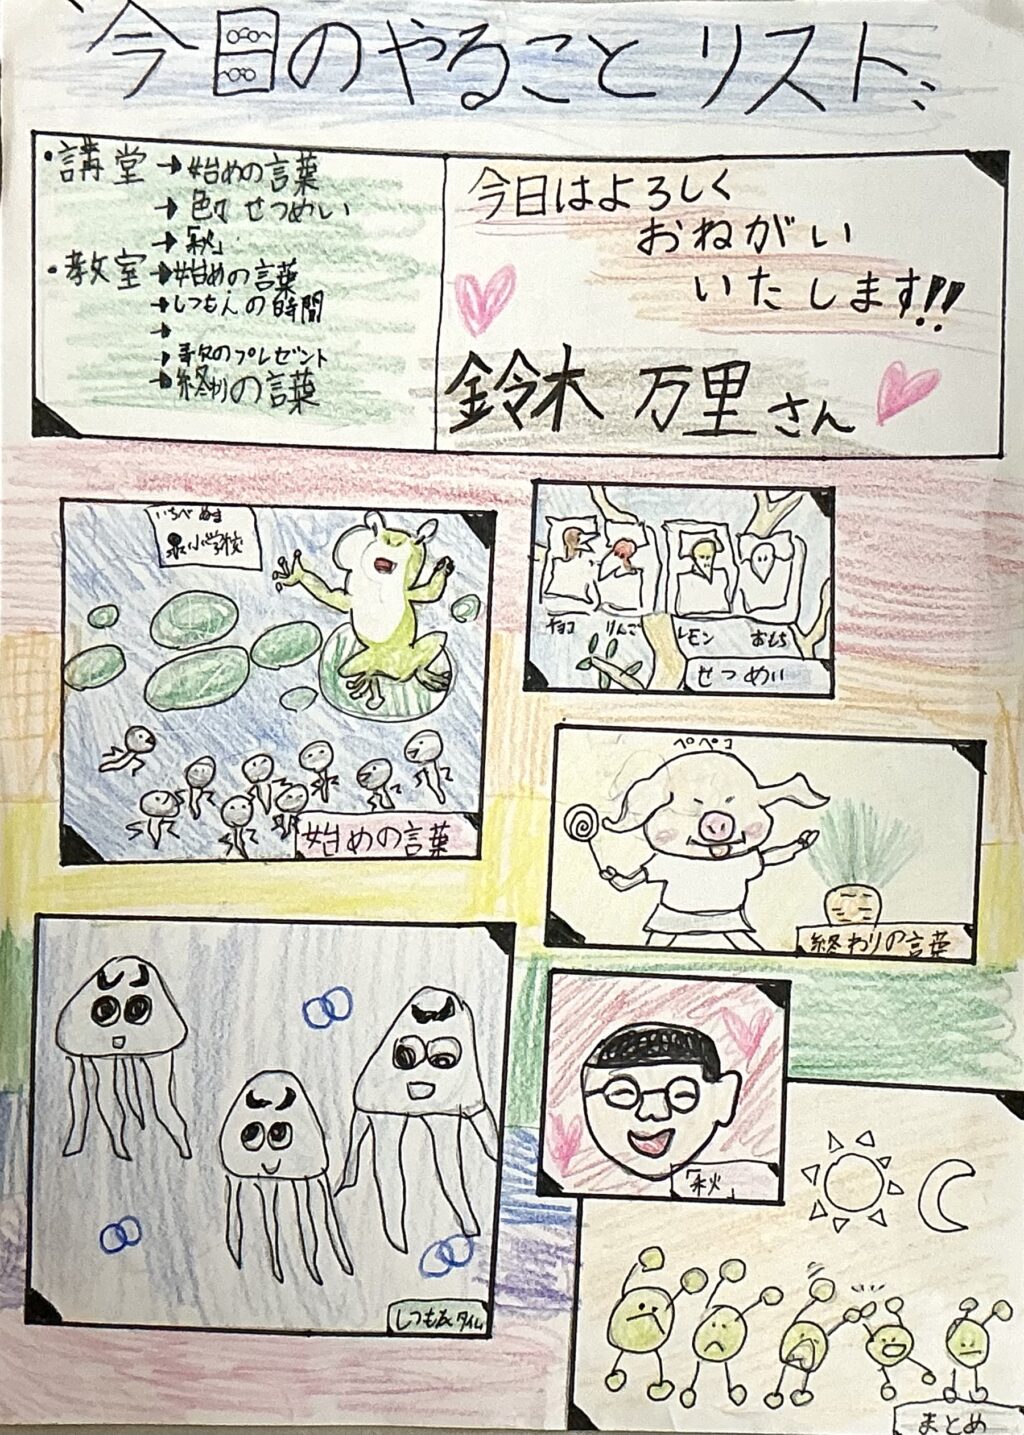 今日のやることリスト
・講堂→始めの言葉
→色々せつめい
→「秋」
・教室→始めの言葉
→しつもんの時間
→
→歌のプレゼント
→終わりの言葉
今日はよろしく
おねがい
いたします!!
鈴木 万里さん
いちべぬま
泉小学校
始めの言葉
チョコ りんご レモン おもち
せつめい
ペペコ
終わりの言葉
「秋」
しつもんタイム
まとめ